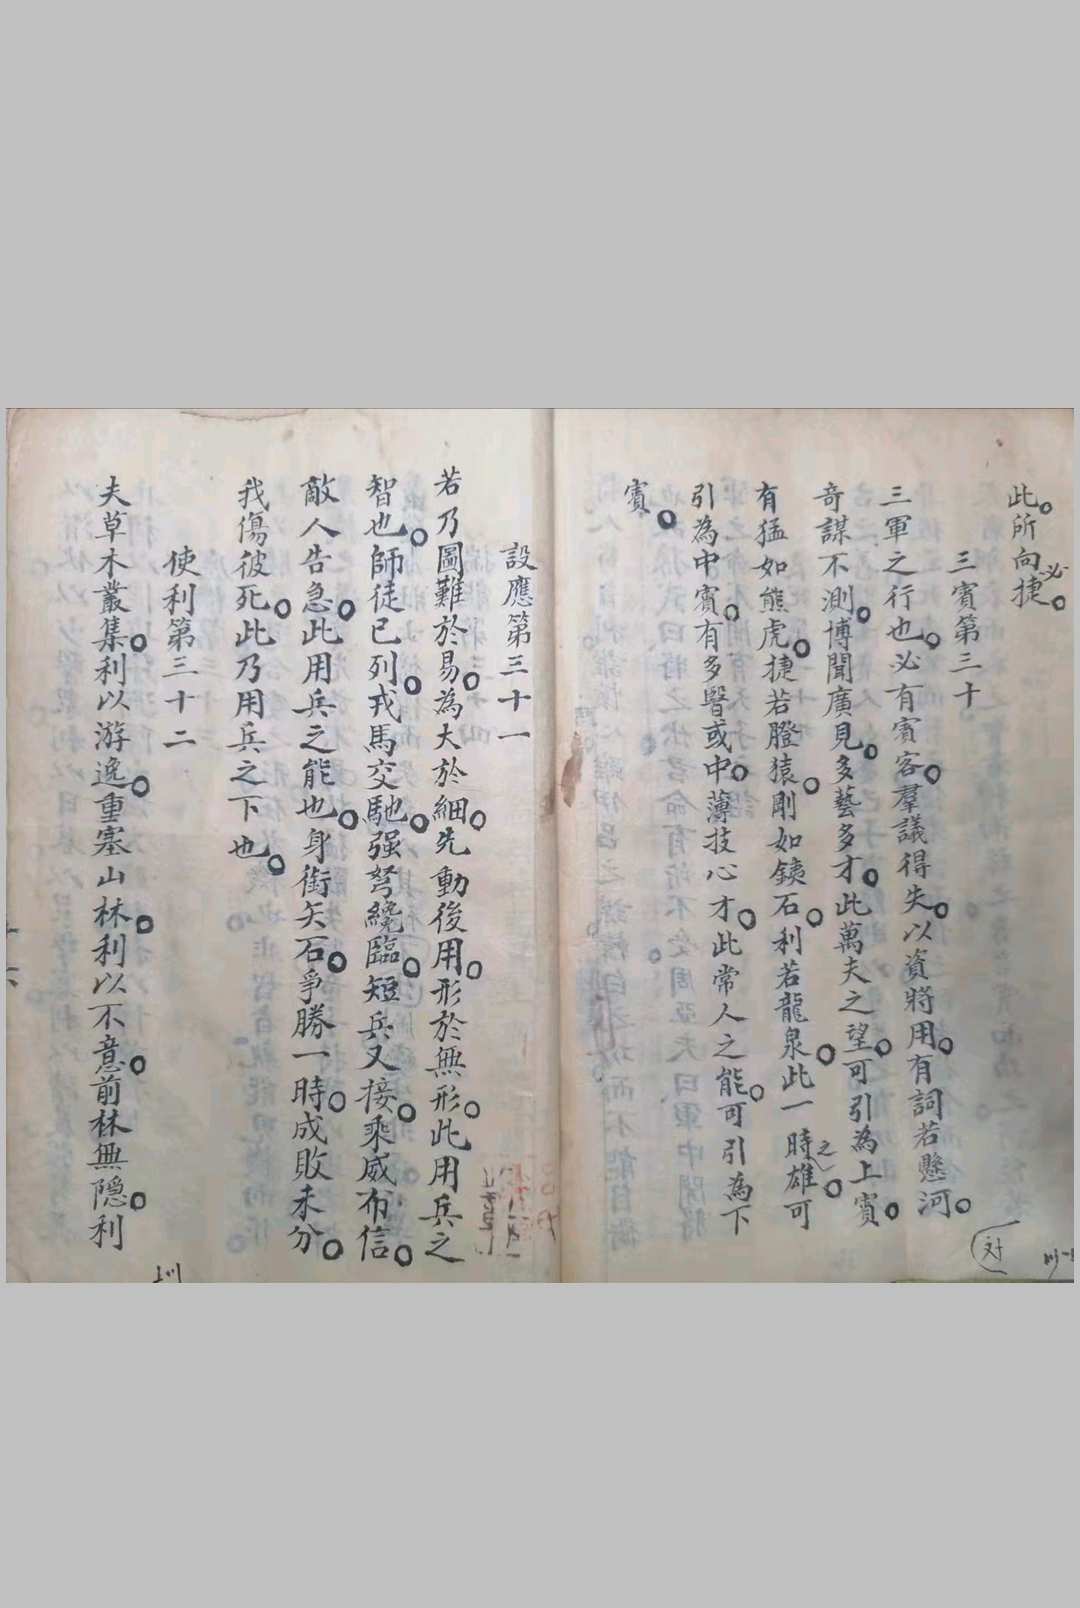 此。所向必捷。
三賓第三十
三軍之行也。必有賓客。羣議得失。以資將用。有詞若懸河。
奇謀不測。博聞廣見。多藝多才。此萬夫之望。可引為上賓。
有猛如熊虎。捷若騰猿。剛如鐵石。利若龍泉。此一時之雄。可
引為中賓。有多醫或中。薄技心才。此常人之能。可引為下
賓。
設應第三十一
若乃圖難於易。為大於細。先動後用。形於無形。此用兵之
智也。師徒已列。戎馬交馳。强弩纔臨。短兵又接。乘威布信。
敵人告急。此用兵之能也。身衝矢石。爭勝一時。成敗未分。
我傷彼死。此乃用兵之下也。
使利第三十二
夫草木叢集。利以游逸。重塞山林。利以不意。前林無隱。利